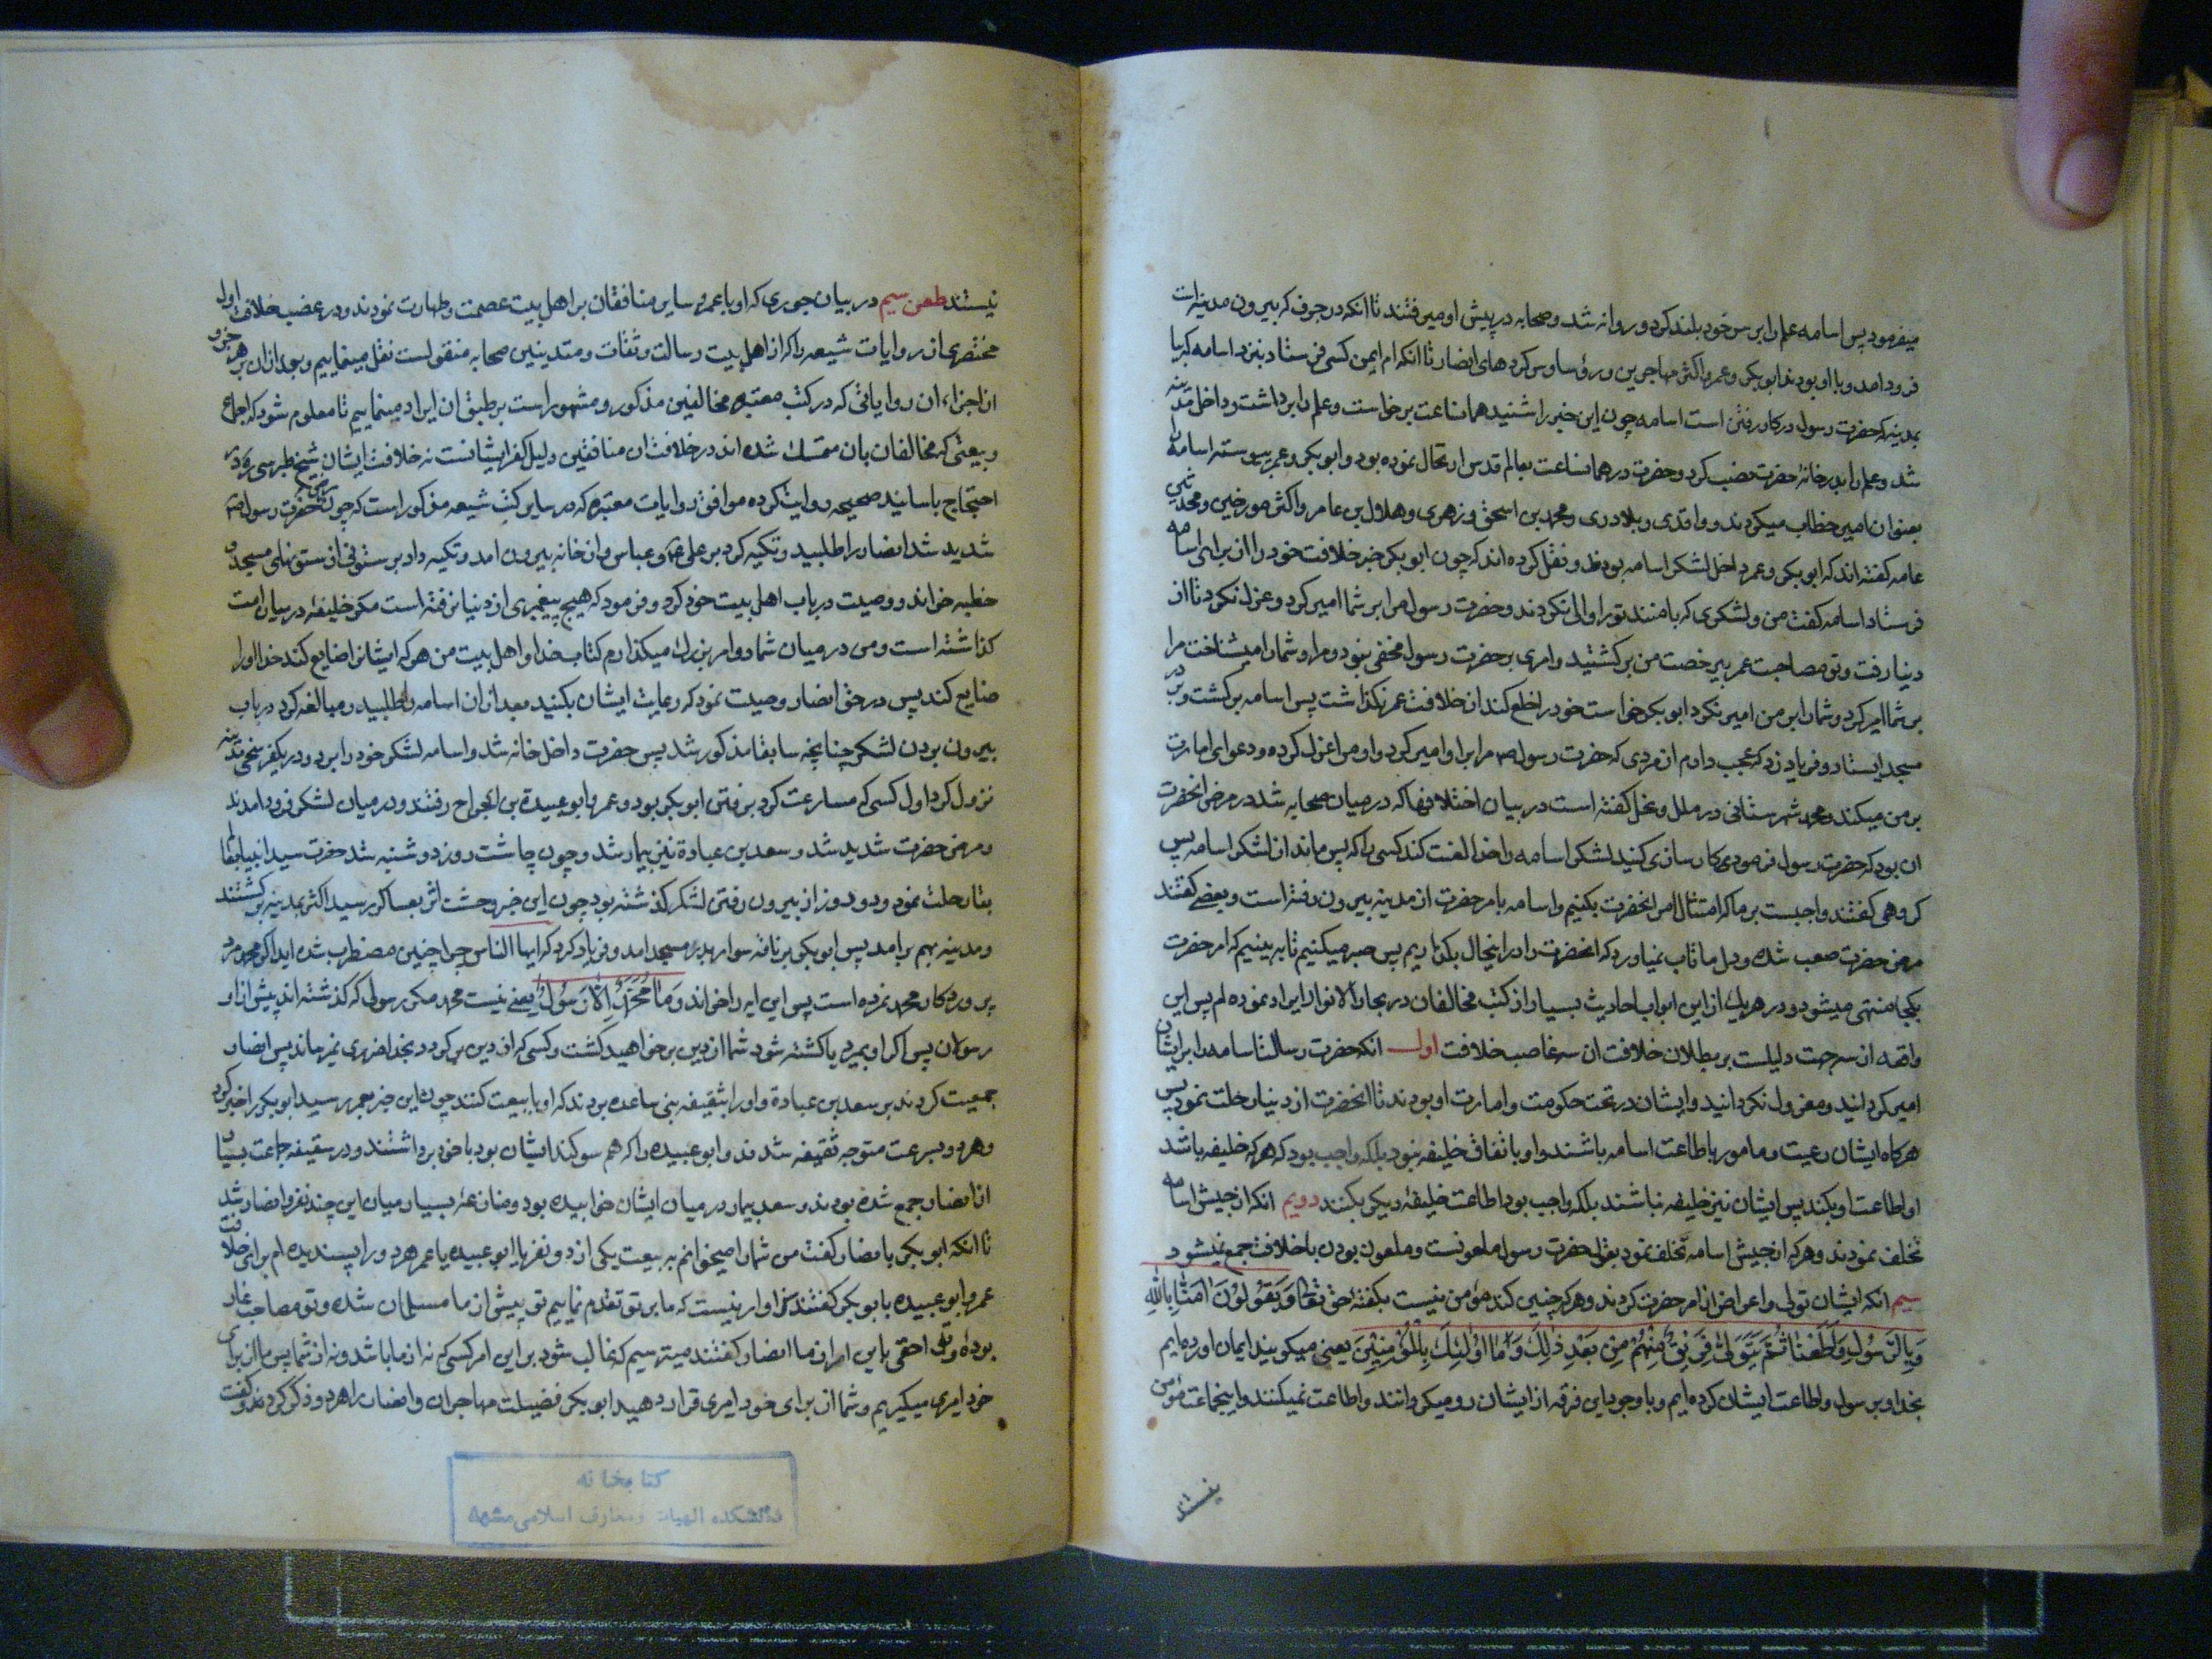 میفرمود پس اسامه علم را بر سر خود بلند کرد و روانه شد و صحابه در پیش او میرفتند تا انکه در جرف که بیرون مدینه است
فرود امد و با او بودند ابو بکر و عمر و اکثر مهاجرین و رؤسا و سرکرد های انصار تا انکه ام ایمن کسی فرستاد بنزد اسامه که بیا
بمدینه که حضرت رسول در کار رفتن است اسامه چون این خبر را شنید همان ساعت برخواست و علم را برداشت و داخل مدینه
شد و علم را بدر خانهٔ حضرت نصب کرد و حضرت در همان ساعت بعالم قدس ارتحال نموده بود و ابو بکر و عمر پیوسته اسامه را
بعنوان امیر خطاب میکردند و واقدی و بلادری و محمد بن اسحق و زهری و هلال بن عامر و اکثر مورخین و محدثین
عامه گفته اند که ابو بکر و عمر داخل لشکر اسامه بودند و نقل کرده اند که چون ابو بکر خبر خلافت خود را از برای اسامه
فرستاد اسامه گفت من و لشکری که با منند تو را والی نکردند و حضرت رسول مرا بر شما امیر کرد و عزل نکرد تا از
دنیا رفت و تو مصاحبت عمر بی رخصت من برگشتید و امری بر حضرت رسول مخفی نبود و مرا و شما را میشناخت مرا
بر شما امیر کرد و شما را بر من امیر نکرد ابو بکر خواست خود را خلع کند از خلافت عمر نگذاشت پس اسامه برگشت و بر در
مسجد ایستاد و فریاد زد که عجب دارم از مردی که حضرت رسول ص مرا بر او امیر کرد و او مرا عزل کرده و دعوای امارت
بر من میکند و محمد شهرستانی در ملل و نحل گفته است در بیان اختلافها که در میان صحابه شد در مرض انحضرت
ان بود که حضرت رسول فرمودی کار سازی کنید لشکر اسامه را خدا لعنت کند کسی را که پس ماند از لشکر اسامه پس
گروهی گفتند واجبست بر ما که امتثال امر انحضرت بکنیم و اسامه بامر حضرت از مدینه بیرون رفته است و بعضی گفتند
مرض حضرت صعب شده و دل ما تاب نمیاورد که انحضرت را در اینحال بگذاریم پس صبر میکنیم تا به بینیم که امر حضرت
بکجا منتهی میشود و در هر یک از این ابواب احادیث بسیار از کتب مخالفان در بحار الانوار ایراد نموده ام پس این
واقعه از سه جهت دلیلست بر بطلان خلافت ان سه غاصب خلافت اول انکه حضرت رسالت اسامه را بر ایشان
امیر گردانید و معزول نگردانید و ایشان در تحت حکومت و امارت او بودند تا انحضرت از دنیا رحلت نمود پس
هرگاه ایشان رعیت و مامور باطاعت اسامه باشند و او باتفاق خلیفه نبود بلکه واجب بود که هر که خلیفه باشد
او اطاعت او بکند پس ایشان نیز خلیفه نباشند بلکه واجب بود اطاعت خلیفهٔ دیگر بکنند دویم انکه از جیش اسامه
تخلف نمودند و هر که از جیش اسامه تخلف نمود بقول حضرت رسول ملعونست و ملعون بودن با خلافت جمع نمیشود
سیم انکه ایشان تولی و اعراض از امر حضرت کردند و هر که چنین کند مؤمن نیست بگفتهٔ حق تعالی وَیَقُولُونَ اٰمَنّٰا بِاللّٰهِ
وَبِالرَّسُولِ وَاَطَعْنٰا ثُمَّ یَتَوَلّٰی فَرِیقٌ مِنْهُمْ مِنْ بَعْدِ ذٰلِکَ وَمٰا اُولٰئِکَ بِالْمُؤْمِنِینَ یعنی میگویند ایمان اورده ایم
بخدا و برسول و اطاعت ایشان کرده ایم و با وجود این فرقه از ایشان رو میگردانند و اطاعت نمیکنند و اینجماعت مؤمن
نیستند
نیستند طعن سیم در بیان جوری که او با عمر و سایر منافقان بر اهل بیت عصمت و طهارت نمودند و در غصب خلافت اول
مختصری از روایات شیعه را که از اهل بیت رسالت و ثقات و متدینین صحابه منقولست نقل مینماییم و بعد از ان بر هر جزو
از اجزاء ان روایاتی که در کتب معتبرهٔ مخالفین مذکور و مشهور است بر طبق ان ایراد مینماییم تا معلوم شود که اجماع
و بیعتی که مخالفان بان متمسک شده اند در خلافت ان منافقین دلیل کفر ایشانست نه خلافت ایشان شیخ طبرسی ره در
احتجاج باسانید صحیحه روایت کرده موافق روایات معتبره که در سایر کتب شیعه مذکور است که چون مرض حضرت رسول ص
شدید شد انصار را طلبید و تکیه کرد بر علی ع و عباس و از خانه بیرون امد و تکیه داد بر ستونی از ستونهای مسجد و
خطبه خواند و وصیت در باب اهل بیت خود کرد و فرمود که هیچ پیغمبری از دنیا نرفته است مگر خلیفهٔ در میان امت
گذاشته است و من در میان شما دو امر بزرک میگذارم کتاب خدا و اهل بیت من هر که ایشانرا ضایع کند خدا او را
ضایع کند پس در حق انصار وصیت نمود که رعایت ایشان بکنید بعد از ان اسامه را طلبید و مبالغه کرد در باب
بیرون بردن لشکر چنانچه سابقا مذکور شد پس حضرت داخل خانه شد و اسامه لشکر خود را برد و در یکفرسخی مدینه
نزول کرد اول کسی که مسارعت کرد برفتن ابو بکر بود و عمر و ابو عبیدة بن الجراح رفتند و در میان لشکر فرود امدند
و مرض حضرت شدید شد و سعد بن عبادة نیز بیمار شد و چون چاشت روز دوشنبه شد حضرت سید انبیا بعالم
بقا رحلت نمود و دو روز از بیرون رفتن لشکر گذشته بود چون این خبر وحشت اثر بعساکر رسید اکثر بمدینه برگشتند
و مدینه بهم برامد پس ابو بکر بر ناقه سوار بدر مسجد امد و فریاد کرد که ایها الناس چرا چنین مضطرب شده اید اگر محمد مرد
پروردگار محمد نمرده است پس این ایه را خواند وَمٰا مُحَمَّدٌ اِلّٰا رَسُولٌ یعنی نیست محمد مگر رسولی که گذشته اند پیش از او
رسولان پس اگر او بمیرد یا کشته شود شما از دین بر خواهید گشت و کسی که از دین برگردد بخدا ضرری نمیرساند پس انصار
جمعیت کردند بر سعد بن عبادة و او را بثقیفهٔ بنی ساعده بردند که او با بیعت کنند چون این خبر بعمر رسید ابو بکر را خبر کرد
و هر دو بسرعت متوجه ثقیفه شدند و ابو عبیده را که هم سوگند ایشان بود با خود برداشتند و در سقیفه جماعت بسیار
از انصار جمع شده بودند و سعد بیمار در میان ایشان خوابیده بود و منازعهٔ بسیار میان این چند نفر و انصار شد
تا انکه ابو بکر با انصار گفت من شما را میخوانم به بیعت یکی از دو نفر یا ابو عبیده یا عمر هر دو را پسندیده ام برای خلافت
عمر و ابو عبیده بابو بکر گفتند سزاوار نیست که ما بر تو تقدم نماییم تو پیش از ما مسلمان شده و تو مصاحب غار
بودهٔ و تو احقی باین امر از ما انصار گفتند میترسیم که غالب شود بر این امر کسی که نه از ما باشد و نه از شما پس ما از برای
خود امیری میگیریم و شما از برای خود امیری قرار دهید ابو بکر فضیلت مهاجران و انصار را هر دو ذکر کرد و گفت
کتابخانه
دانشکده الهیات و معارف اسلامی مشهد